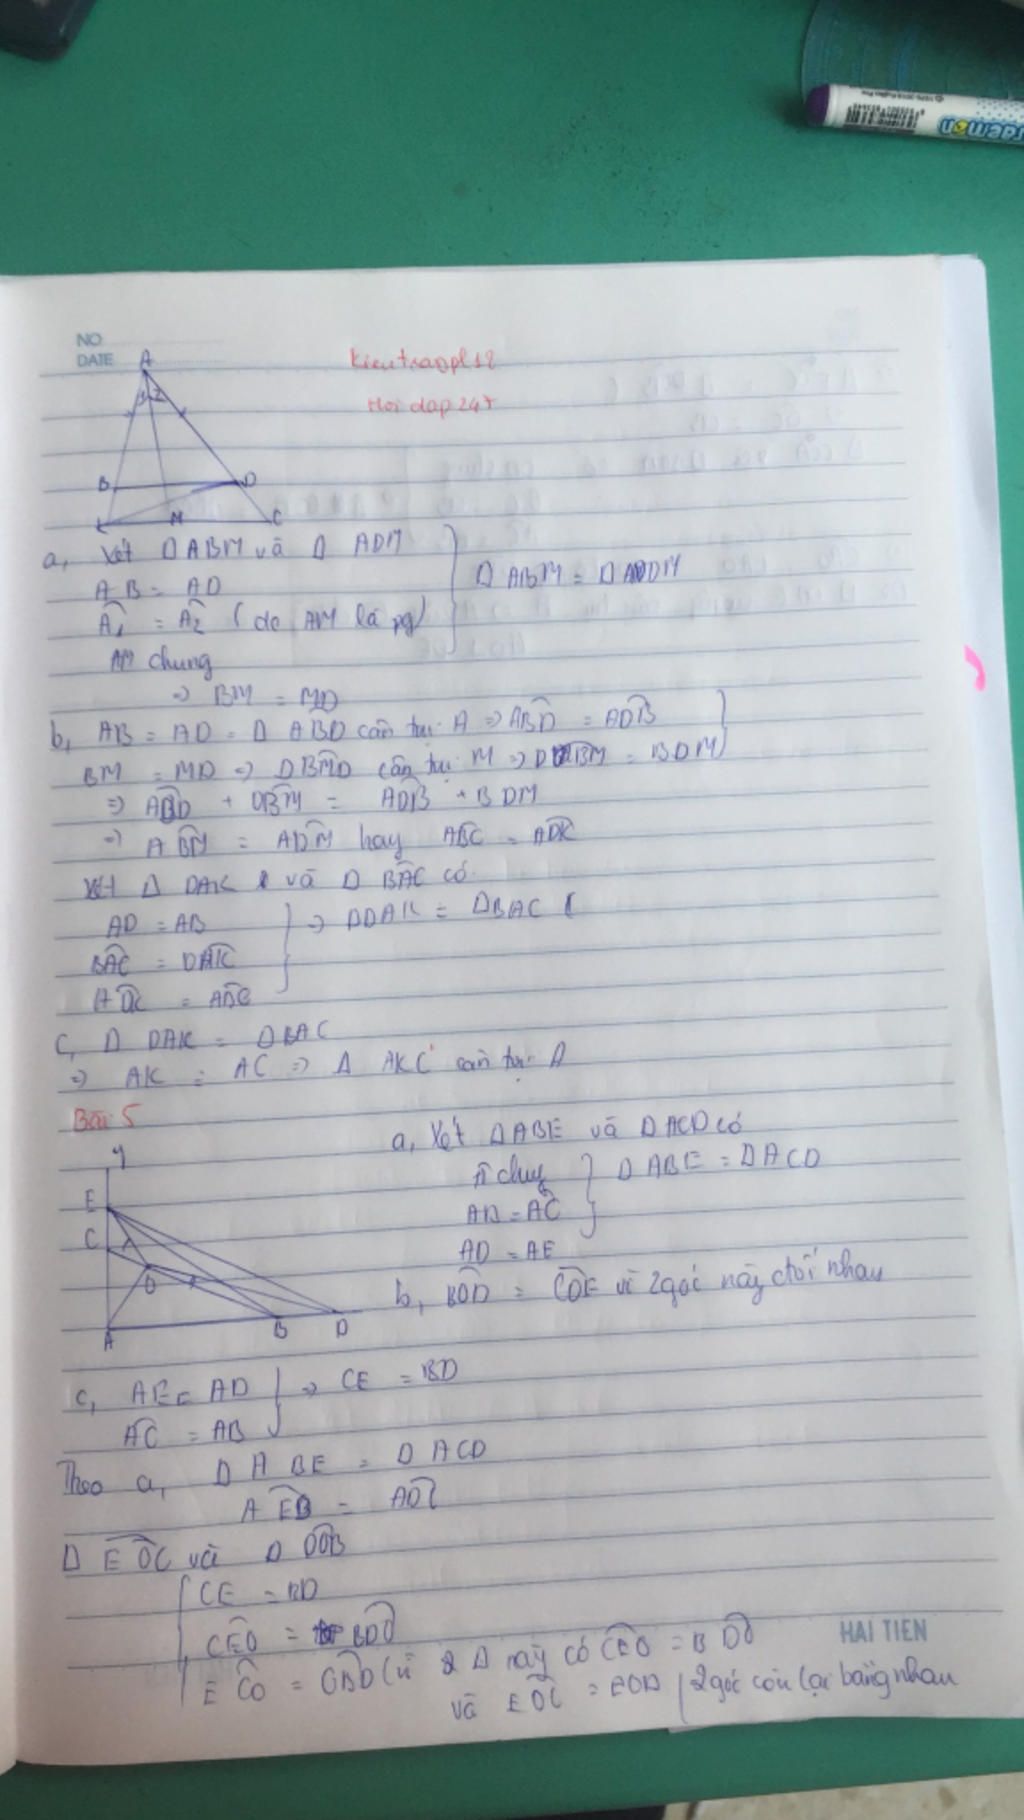 NO
DATE
Kieutrangpl12
Hoi dap 247
A
1 2
B D
K M C
a, Xét Δ ABM và Δ ADM
AB = AD
Â1 = Â2 (do AM là pg)
AM chung
Δ ABM = Δ ADM
=> BM = MD
b, AB = AD = Δ ABD cân tại A => ABD = ADB
BM = MD => Δ BMD cân tại M => DBM = BDM
=> ABD + DBM = ADB + BDM
=> ABM = ADM hay ABC = ADK
Xét Δ DAK và Δ BAC có
AD = AB
BAC = DAK
ADK = ABC
=> Δ DAK = Δ BAC (
c, Δ DAK = Δ BAC
=> AK = AC => Δ AKC cân tại A
Bài 5
y
E
C
O
A B D
a, Xét Δ ABE và Δ ACD có
Â chung
AB = AC
AD = AE
Δ ABE = Δ ACD
b, BOD = COE vì 2 góc này đối nhau
c, AE = AD
AC = AB
=> CE = BD
Theo a, Δ ABE = Δ ACD
AEB = ADC
Δ EOC và Δ DOB
CE = BD
CEO = BDO
ECO = OBD (vì 2 Δ này có CEO = BDO
và EOC = 2 góc còn lại bằng nhau
HAI TIEN